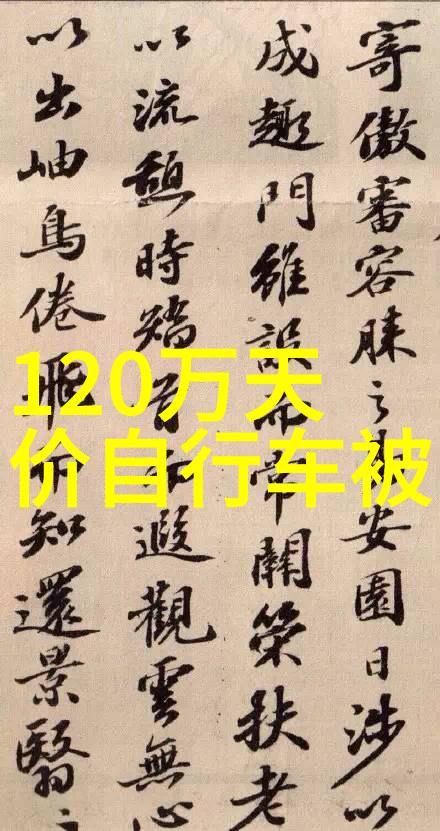 120万天
价自行车被
寄傲審容膝之安園日涉以
成趣門雖設而常關策扶老
以流憩時矯首而遐觀雲無心
以出岫鳥倦飛而知還景翳